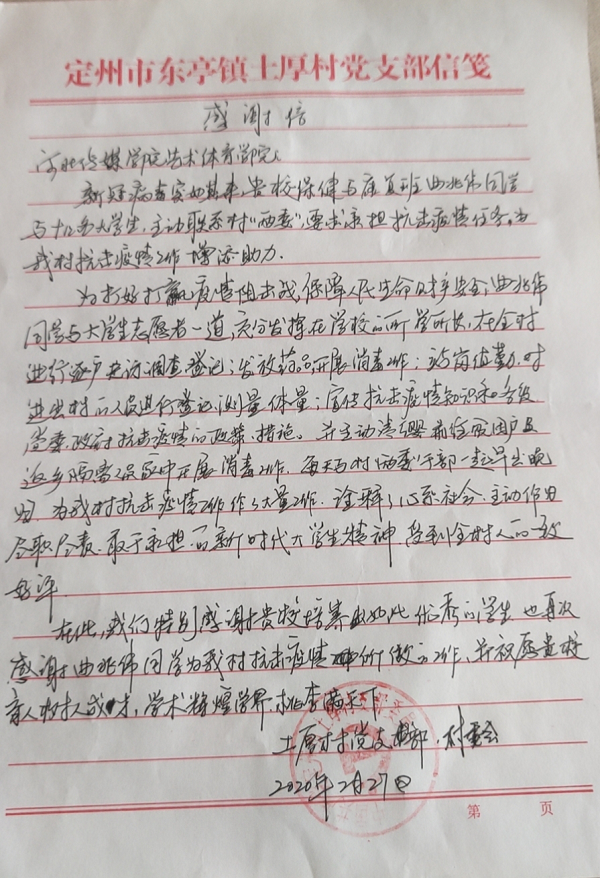 定州市东亭镇土厚村党支部信笺
感谢信
河北传媒学院艺术体育学院:
新冠病毒突如其来,贵校保健与康复班曲兆伟同学
与十几名大学生,主动联系村"两委",要求承担抗击疫情任务,为
我村抗击疫情工作增添助力.
为打好打赢疫情阻击战,保障人民生命健康安全,曲兆伟
同学与大学生志愿者一道,充分发挥在学校的所学所长,在全村
进行逐户走访调查登记;发放药品,开展消毒工作;站岗值勤,对
进出村的人员进行登记测量体量;宣传抗击疫情知识和各级
党委、政府抗击疫情的政策、措施。并主动请缨前往困难户及
返乡隔离人员家中开展消毒工作.每天与村"两委"干部一起早出晚
归,为我村抗击疫情工作作了大量工作.诠释了心系社会、主动作为
尽职尽责、敢于承担的新时代大学生精神,受到全村人的一致
好评
在此,我们特别感谢贵校培养出如此优秀的学生,也再次
感谢曲兆伟同学为我村抗击疫情所做的工作,并祝愿贵校
育人树人成才,学术辉煌学界,桃李满天下
土厚村党支部、村委会
2020年2月27日
第 页